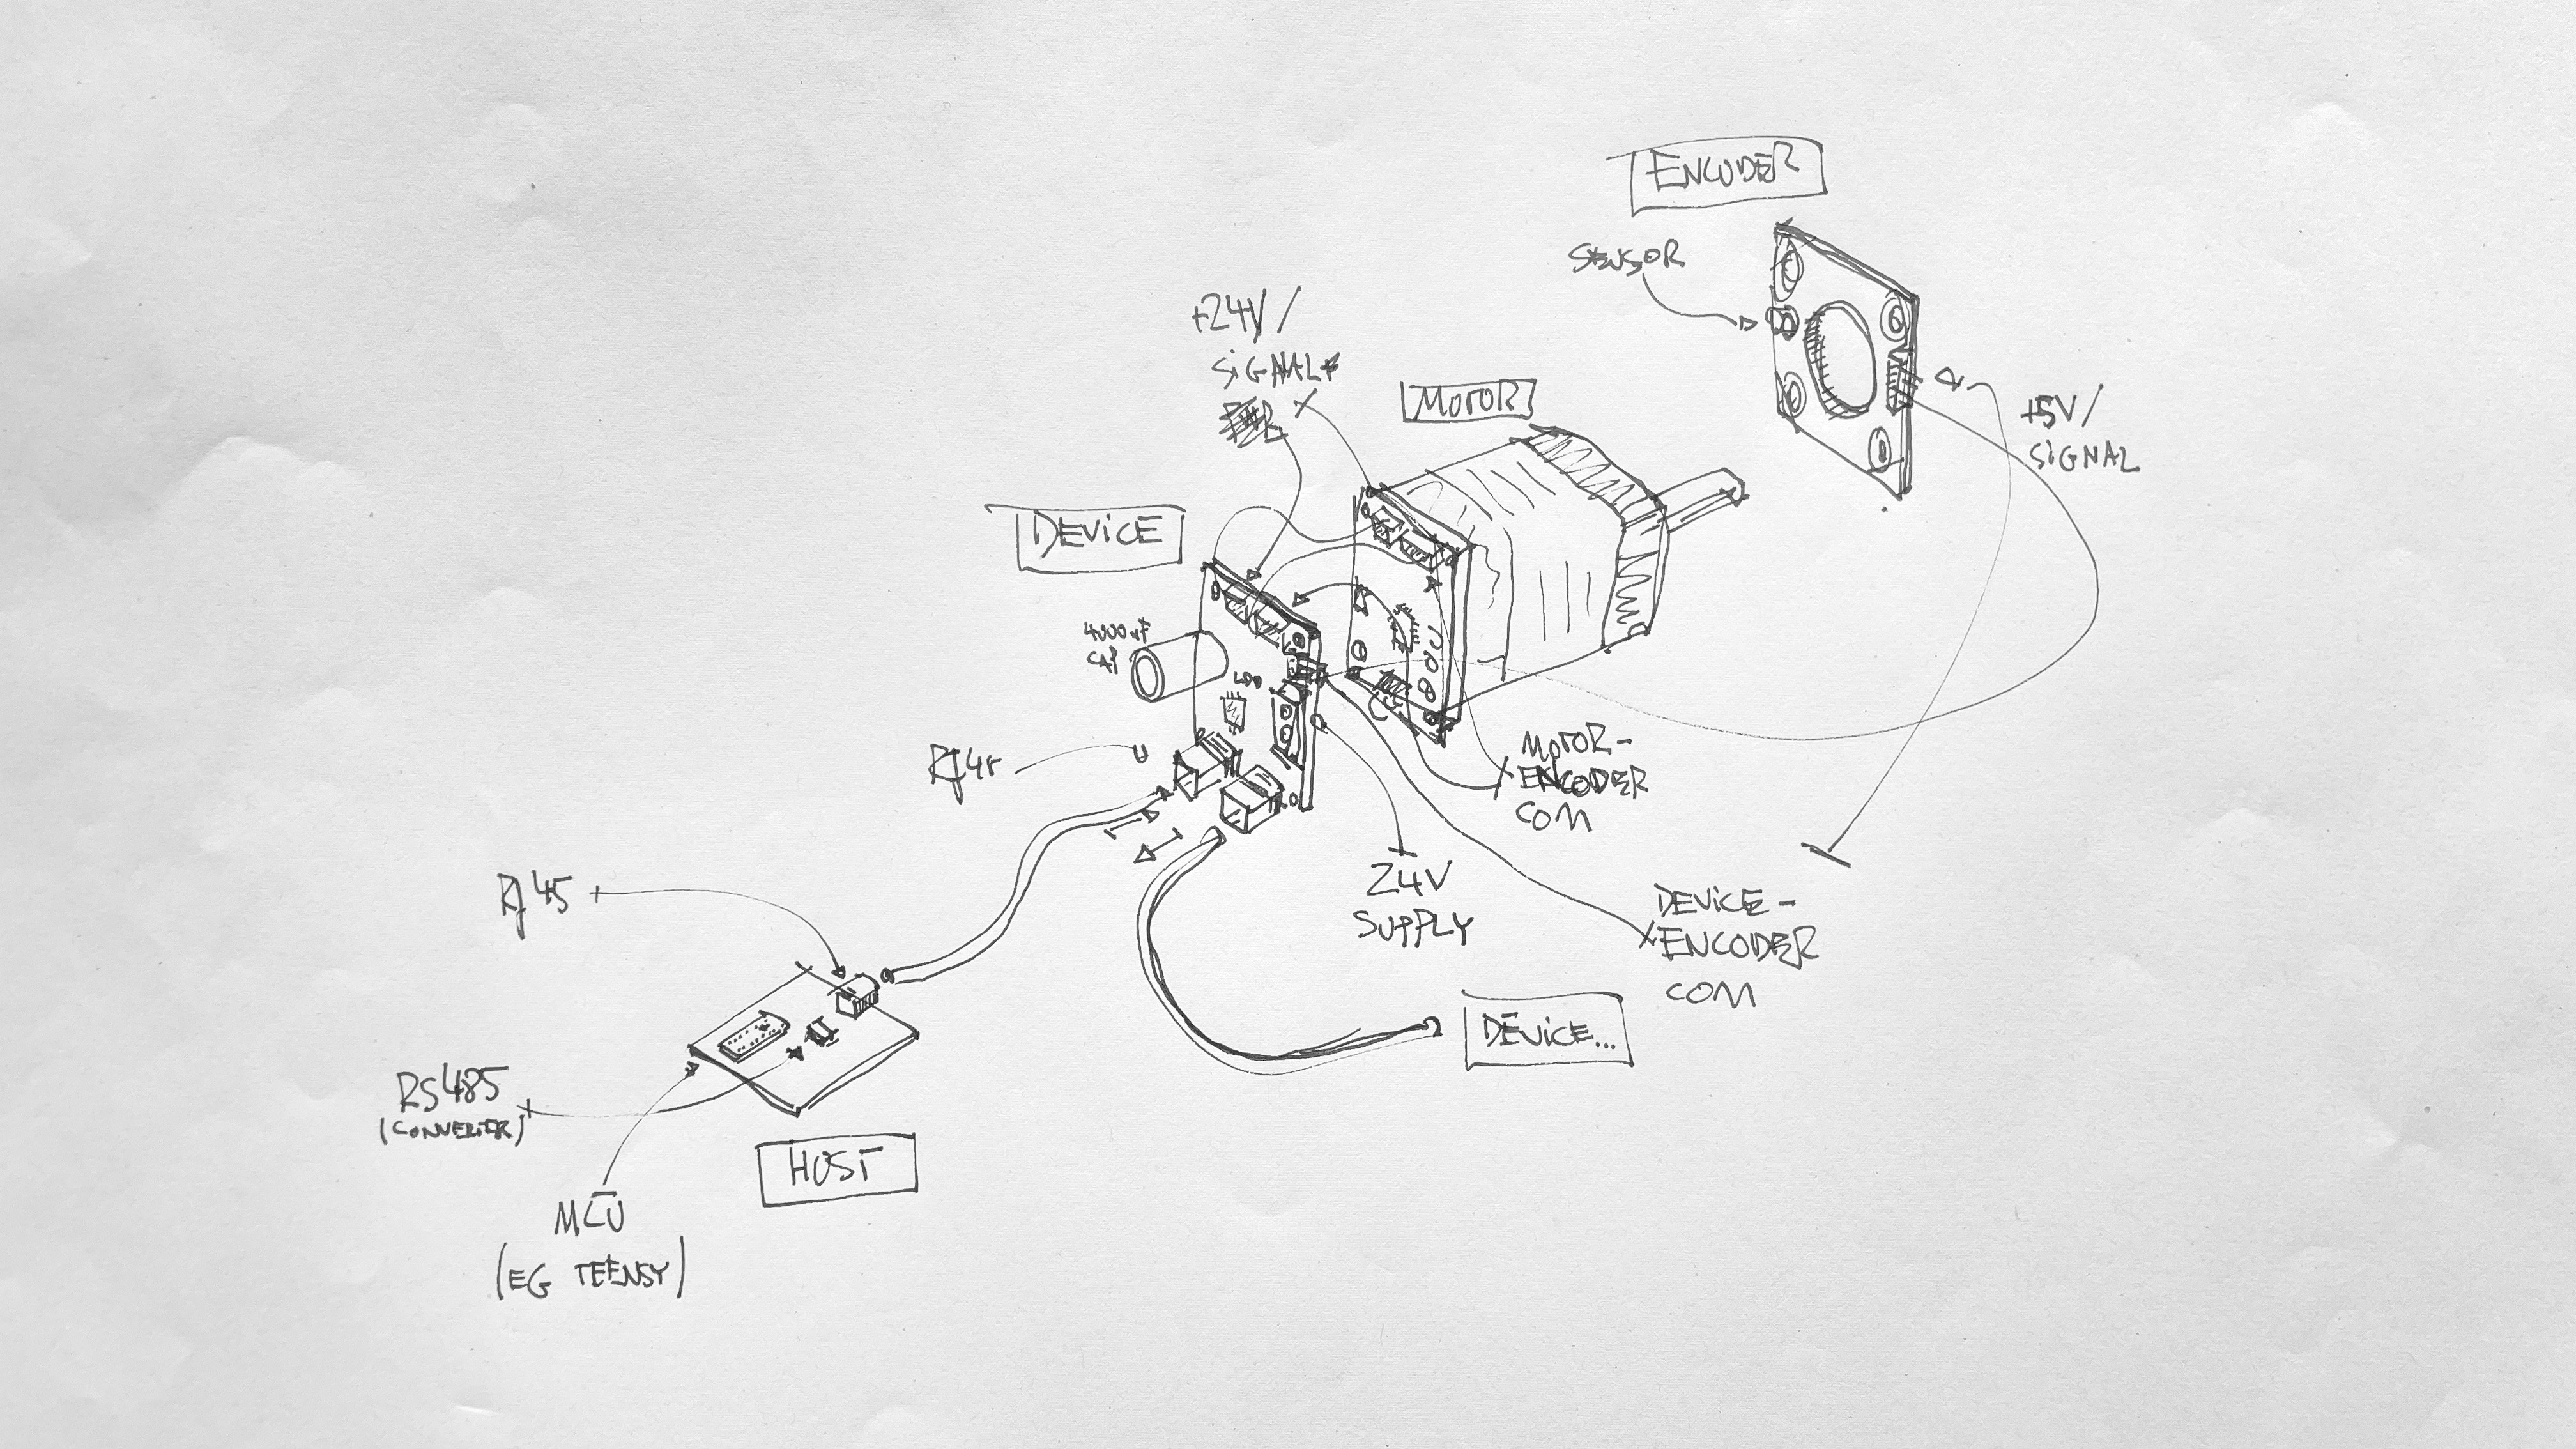 ENCODER
SENSOR
+24V /
SiGNAL*
MOTOR
+5V /
SiGNAL
DEViCE
4000uF
CAP
LDO
RJ45
MOTOR-
ENCODER
COM
24V
SUPPLY
RJ45
DEViCE-
ENCODER
COM
DEViCE...
RS485
(CONVERTER)
HOST
MCU
(EG TEENSY)